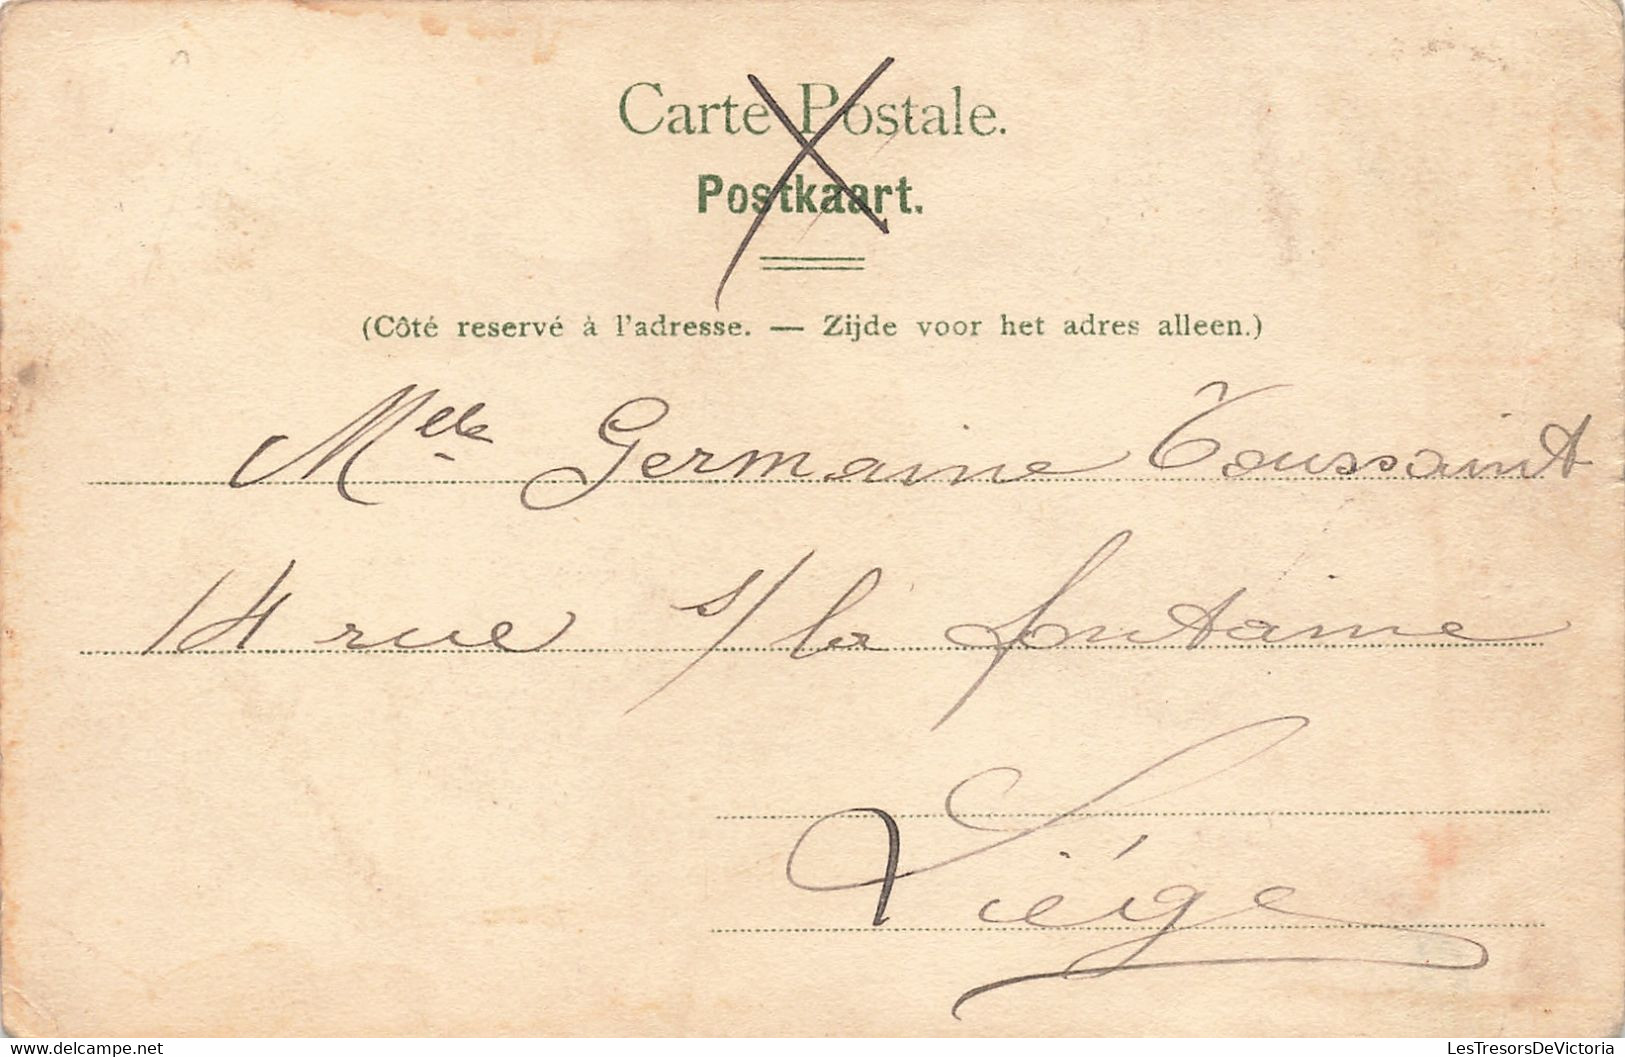 Carte Postale.
Postkaart.
(Côté reservé à l'adresse. — Zijde voor het adres alleen.)
Melle Germaine Toussaint
14 rue s/ la fontaine
Liége
delcampe.net
LesTresorsDeVictoria